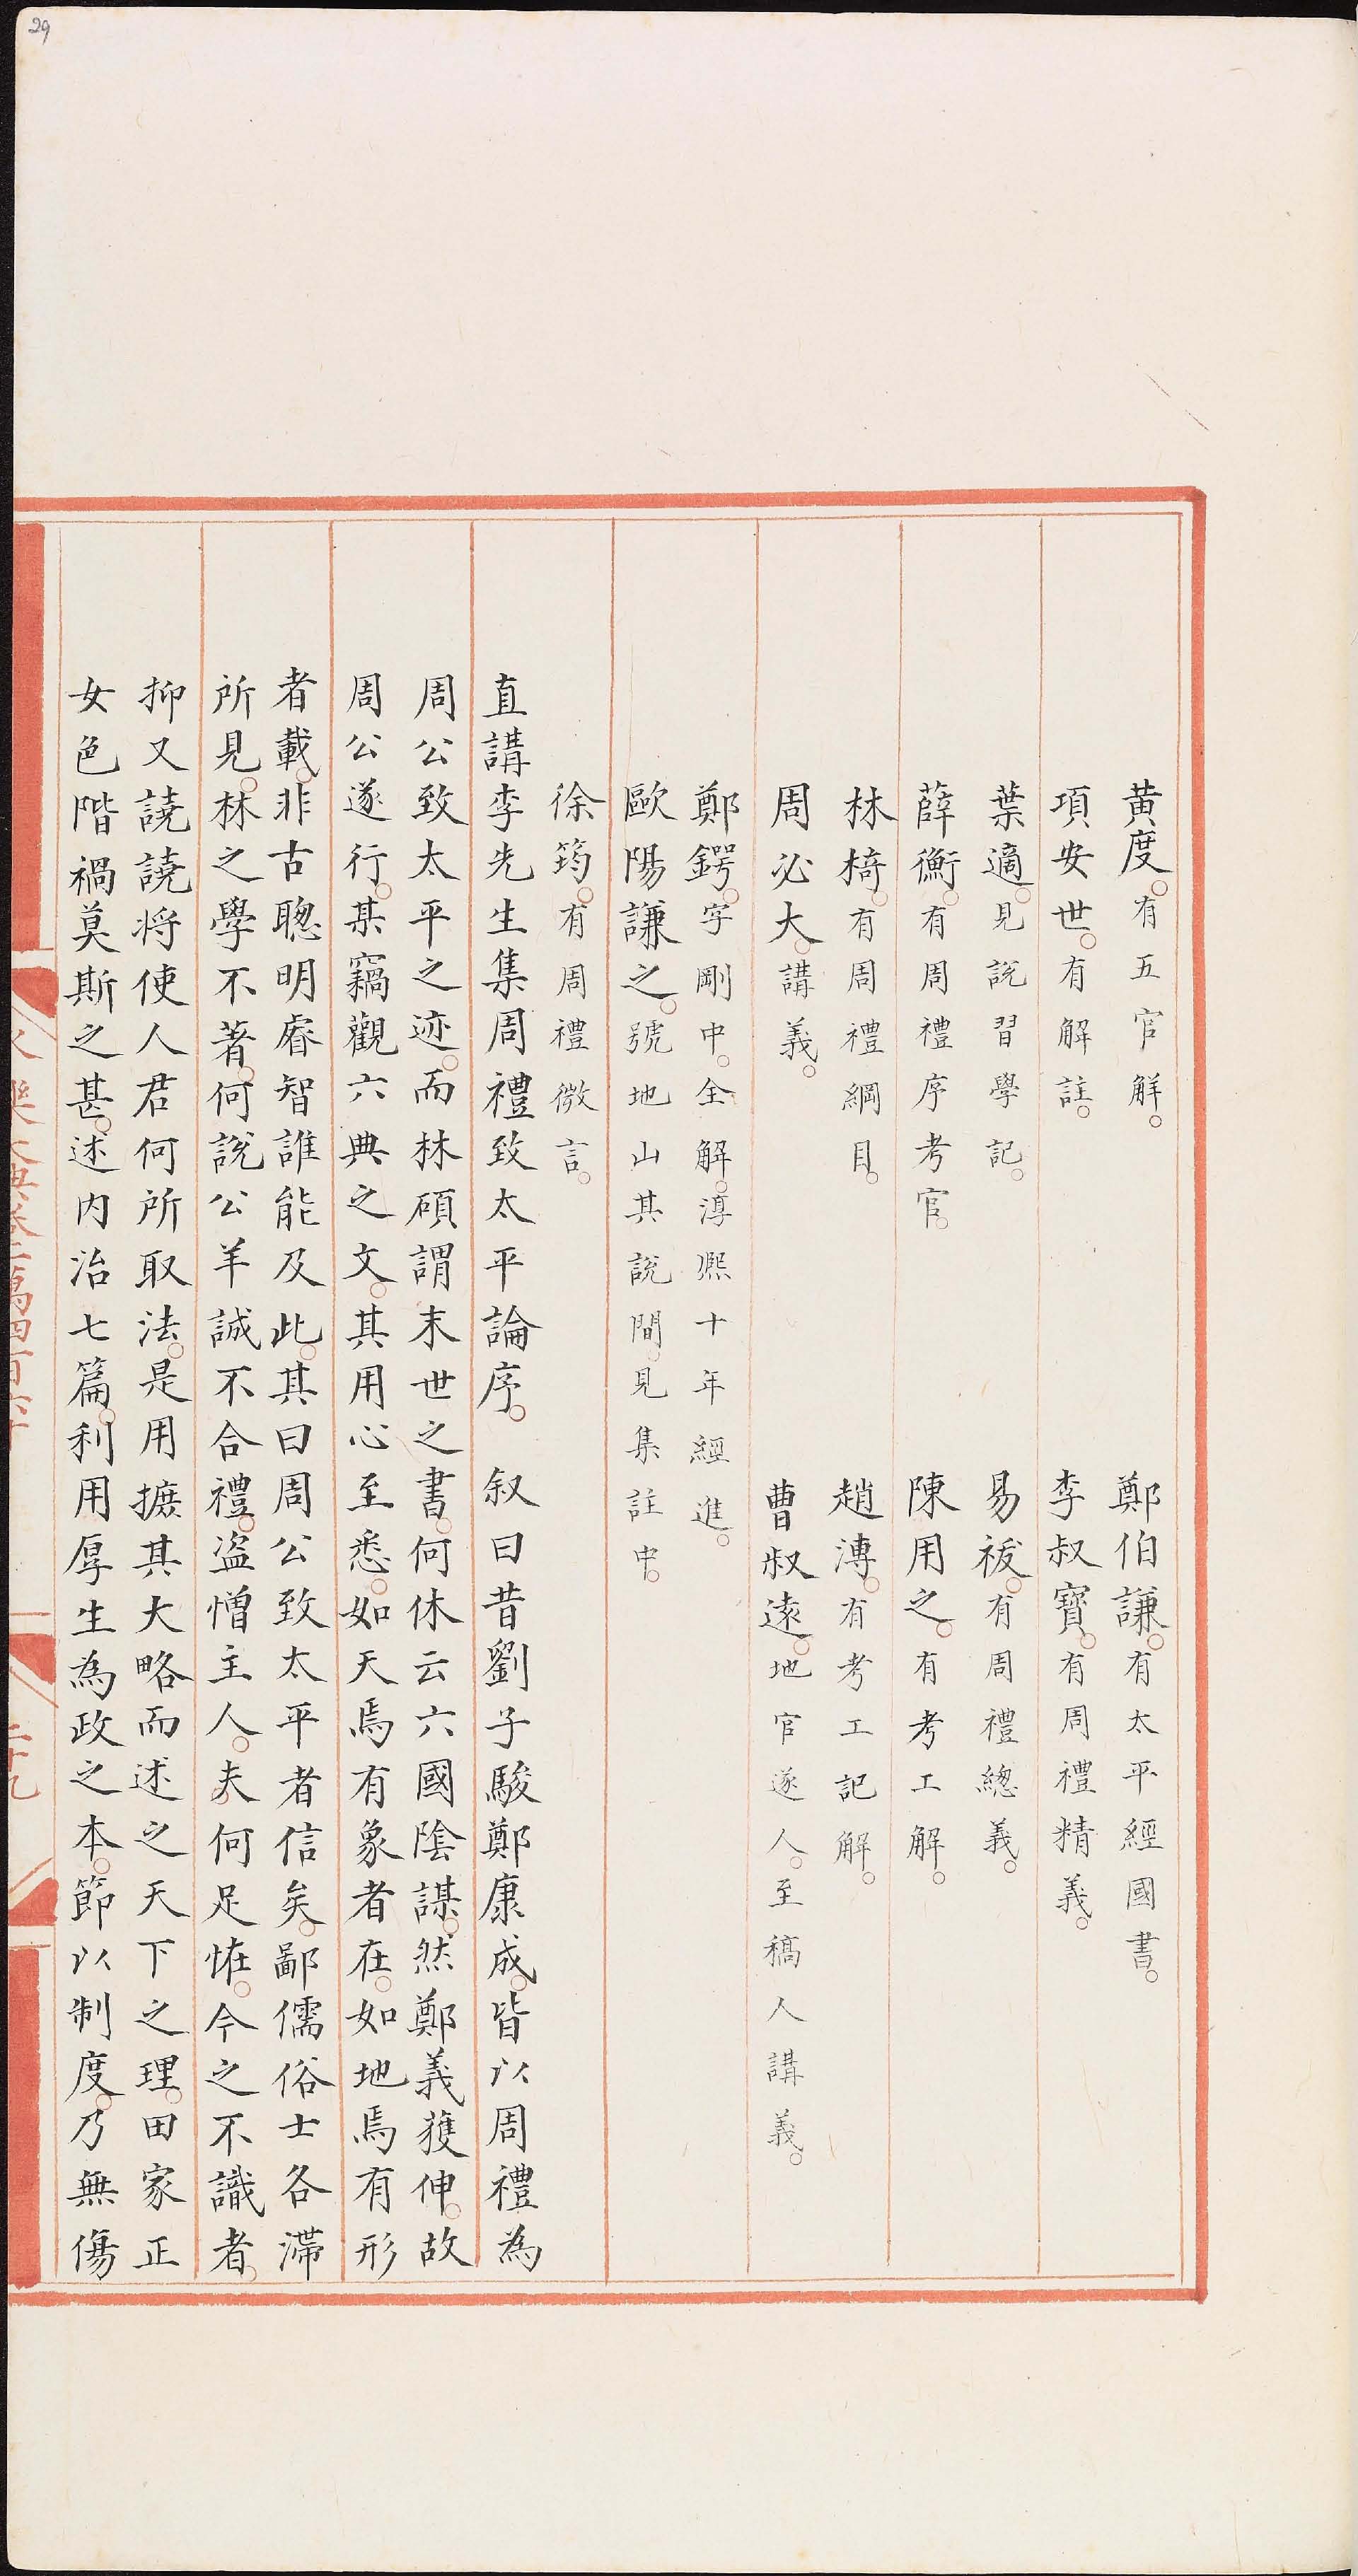 黃度。有五官解。 鄭伯謙。有太平經國書。
項安世。有解註。 李叔寶。有周禮精義。
葉適。見說習學記。 易祓。有周禮總義。
薛衡。有周禮序考官。 陳用之。有考工解。
林椅。有周禮綱目。 趙溥。有考工記解。
周必大。講義。 曹叔遠。地官遂人。至稿人講義。
鄭鍔。字剛中。全解。淳熙十年經進。
歐陽謙之。號地山其說間。見集註中。
徐筠。有周禮微言。
直講李先生集周禮致太平論序。 叙曰昔劉子駿鄭康成。皆以周禮為
周公致太平之迹。而林碩謂末世之書。何休云六國陰謀。然鄭義獲伸。故
周公遂行。某竊觀六典之文。其用心至悉。如天焉有象者在。如地焉有形
者載。非古聰明睿智誰能及此。其曰周公致太平者信矣。鄙儒俗士各滯
所見。林之學不著。何說公羊誠不合禮。盜憎主人。夫何足恠。今之不識者。
抑又譊譊将使人君何所取法。是用摭其大略而述之天下之理。田家正
女色階禍莫斯之甚。述内治七篇。利用厚生為政之本。節以制度。乃無傷
永樂大典卷二萬四百六十
二十九
29